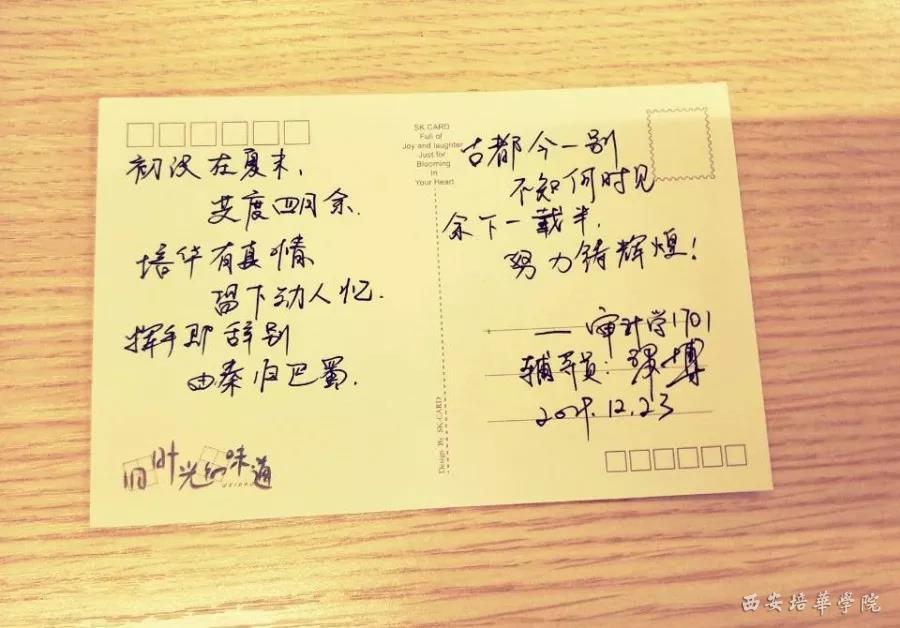 初在夏末,
度四月余.
培华有真情
留下动人忆.
挥手即辞别
由秦归巴蜀.
旧时光的味道
SK CARD
Full of
Joy and laughter
Just for
Blooming
In
Your Heart
Design By SK-CARD
古都今一别
不知何时见
余下一载半,
努力铸辉煌!
—审计学1701
辅导员: 博
2019.12.23
西安培華学院